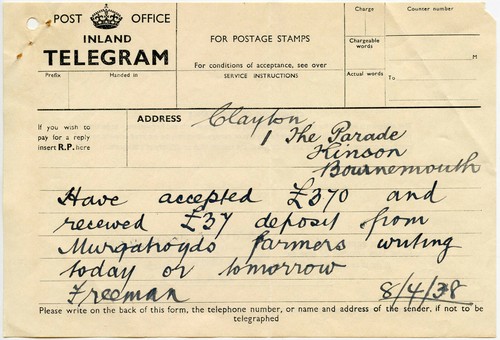 POST OFFICE
INLAND
TELEGRAM
Prefix Handed in
FOR POSTAGE STAMPS
For conditions of acceptance, see over
SERVICE INSTRUCTIONS
Charge
Chargeable
words
Actual words
Counter number
M
To
If you wish to
pay for a reply
insert R.P. here
ADDRESS
Clayton
1 The Parade
Kinson
Bournemouth
Have accepted £370 and
received £37 deposit from
Murgatroyds farmers writing
today or tomorrow
Freeman 8/4/38
Please write on the back of this form, the telephone number, or name and address of the sender, if not to be
telegraphed